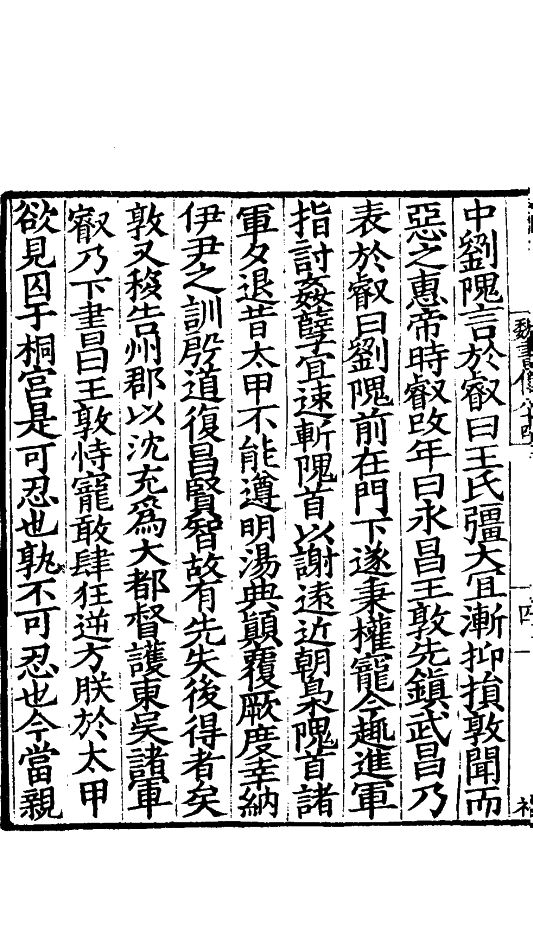 中劉隗言於叡曰王氏彊大宜漸抑損敦聞而
惡之惠帝時叡改年曰永昌王敦先鎮武昌乃
表於叡曰劉隗前在門下遂秉權寵今趣進軍
指討姦孽宜速斬隗首以謝遠近朝梟隗首諸
軍夕退昔太甲不能遵明湯典顛覆厥度幸納
伊尹之訓殷道復昌賢智故有先失後得者矣
敦又移告州郡以沈充爲大都督護東吳諸軍
叡乃下書曰王敦恃寵敢肆狂逆方朕於太甲
欲見囚于桐宮是可忍也孰不可忍也今當親
魏書傳八十四
四